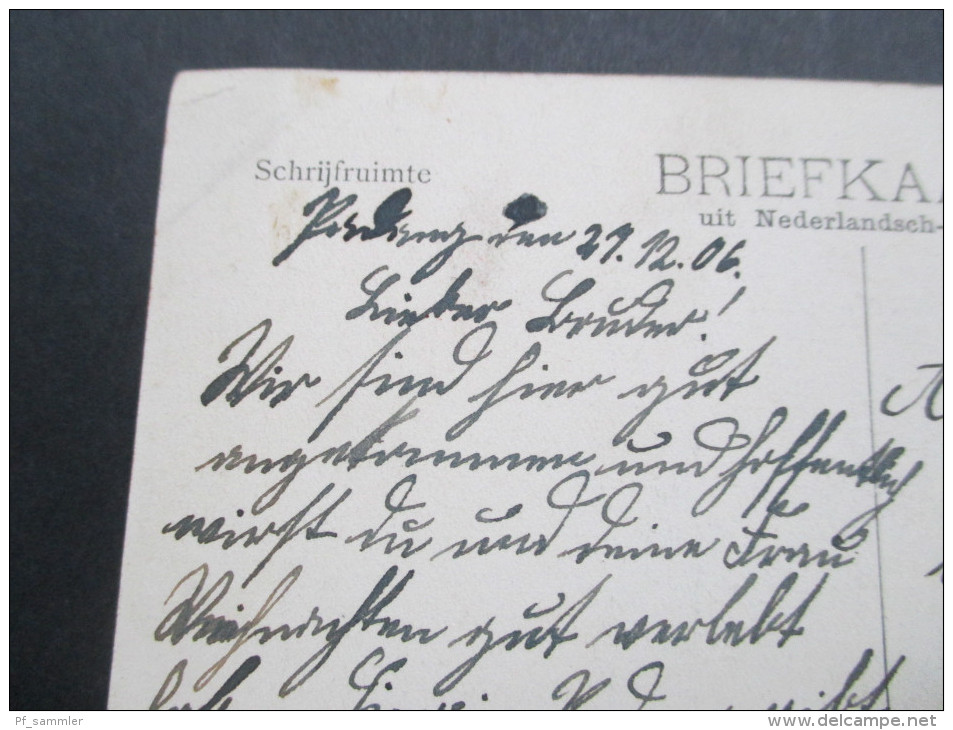 Schrijfruimte
BRIEFKA
uit Nederlandsch-
Padang den 27.12.06.
Lieber Bruder!
Wir sind hier gut
angekommen und hoffentlich
wirst du und deine Frau
Weihnachten gut verlebt
hab
Pf_sammler
www.delcampe.net